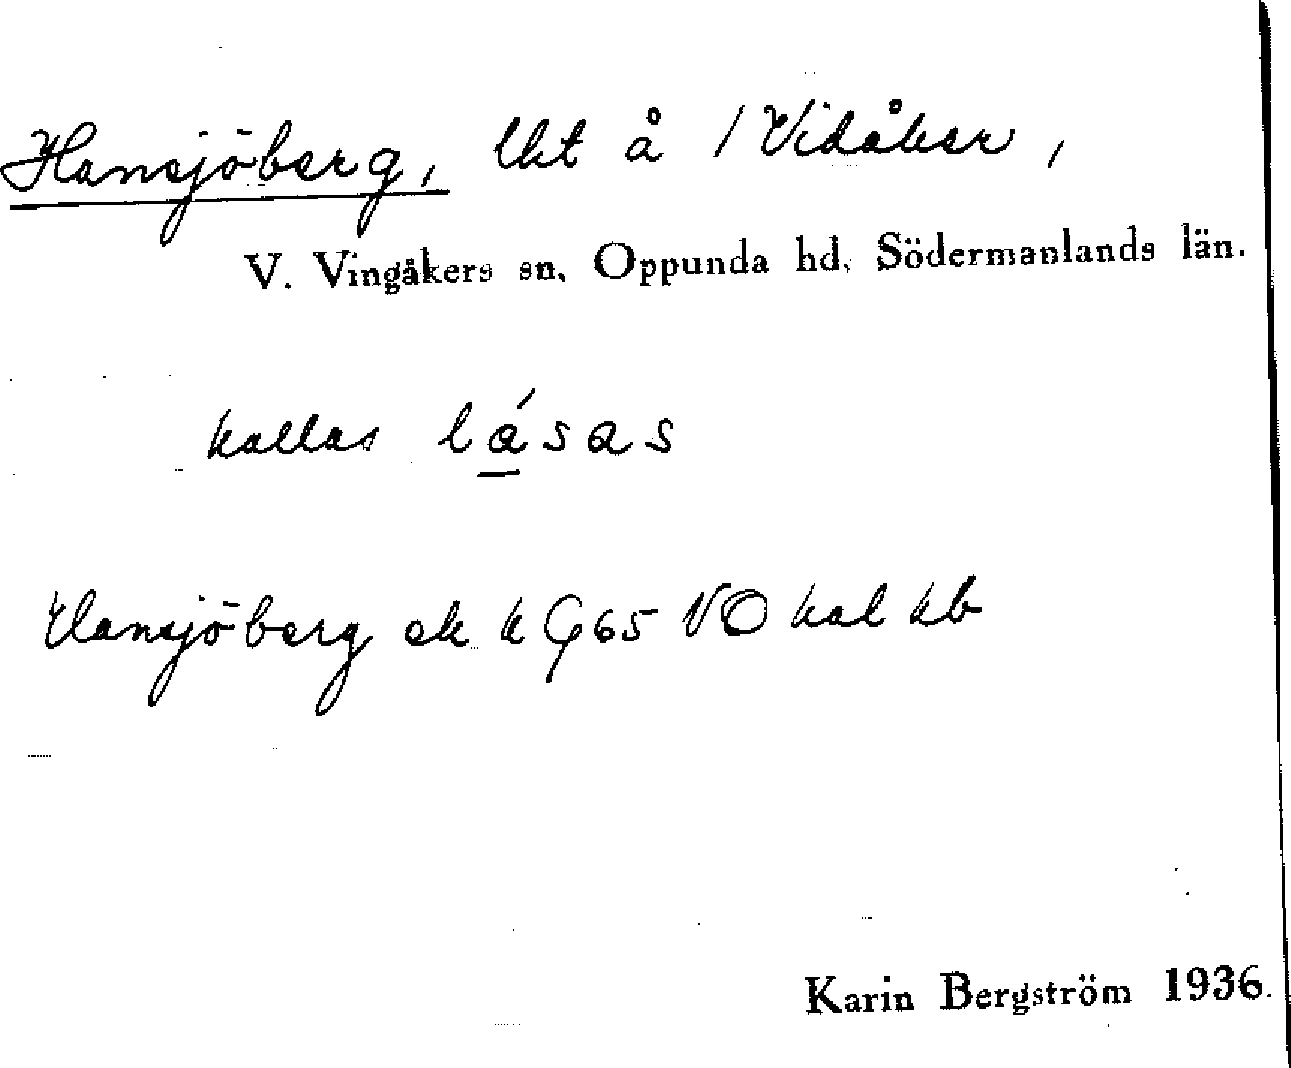 Hansjöberg, lht å 1 Vidåker,
V. Vingåkers sn, Oppunda hd, Södermanlands län.
kallas lásas
Hansjöberg ek k G65 VO kal kb
Karin Bergström 1936.